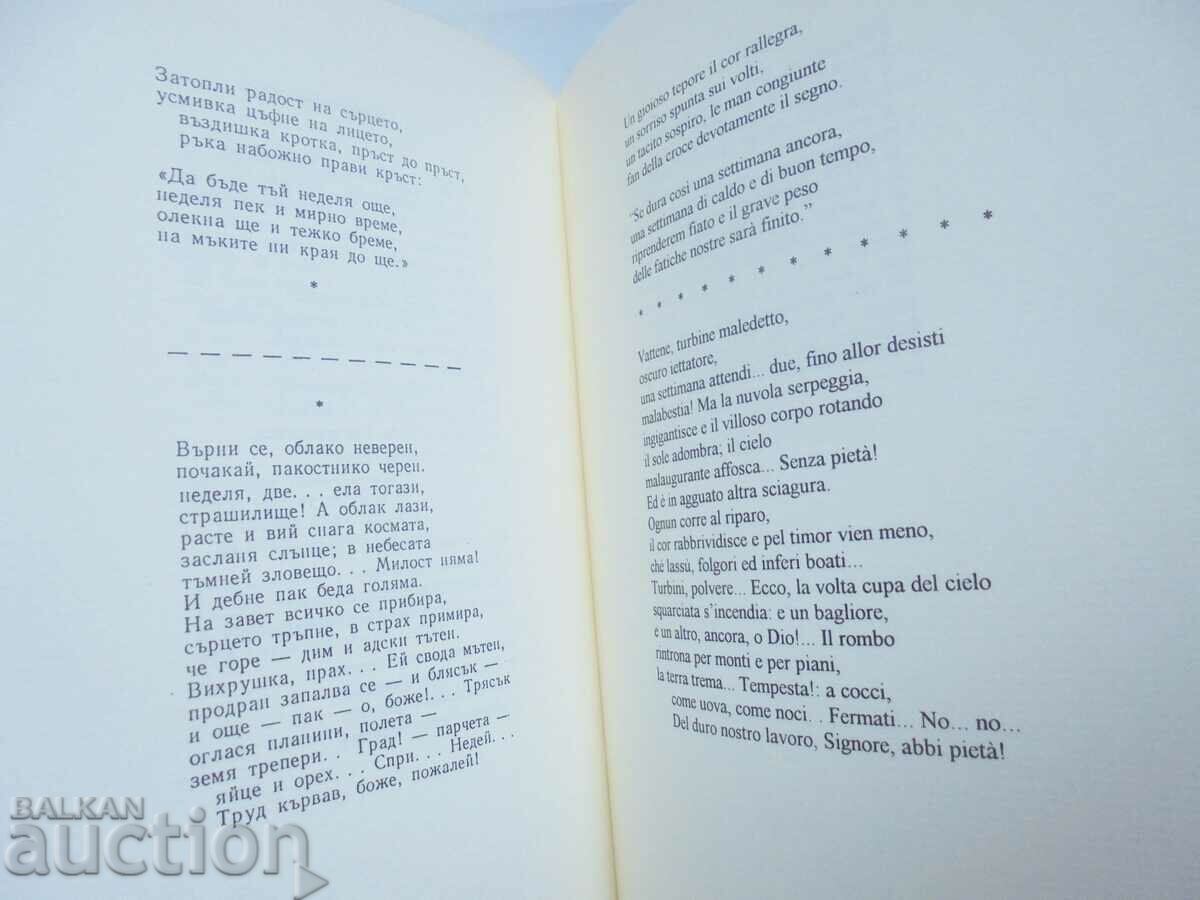 Затопли радост на сърцето,
усмивка цъфне на лицето,
въздишка кротка, пръст до пръст,
ръка набожно прави кръст:
«Да бъде тъй неделя още,
неделя пек и мирно време,
олекна ще и тежко бреме,
на мъките ни края до ще.»
*
— — — — — — — — — — — —
*
Върни се, облако неверен,
почакай, пакостнико черен.
неделя, две. . . ела тогази,
страшилище! А облак лази,
расте и вий снага космата,
засланя слънце; в небесата
тъмней зловещо. . . Милост няма!
И дебне пак беда голяма.
На завет всичко се прибира,
сърцето тръпне, в страх примира,
че горе — дим и адски тътен.
Вихрушка, прах. . . Ей свода мътен,
продран запалва се — и блясък —
и още — пак — о, боже!. . . Трясък
оглася планини, полета —
земя трепери. . . Град! — парчета —
яйце и орех. . . Спри. . . Недей. . .
Труд кървав, боже, пожалей!
Un gioioso tepore il cor rallegra,
un sorriso spunta sui volti,
un tacito sospiro, le man congiunte
fan della croce devotamente il segno.
“Se dura così una settimana ancora,
una settimana di caldo e di buon tempo,
riprenderem fiato e il grave peso
delle fatiche nostre sarà finito.”
* * * * * * * * * * *
Vattene, turbine maledetto,
oscuro iettatore,
una settimana attendi... due, fino allor desisti
malabestia! Ma la nuvola serpeggia,
ingigantisce e il villoso corpo rotando
il sole adombra; il cielo
malaugurante affosca... Senza pietà!
Ed è in agguato altra sciagura.
Ognun corre al riparo,
il cor rabbrividisce e pel timor vien meno,
ché lassù, folgori ed inferi boati...
Turbini, polvere... Ecco, la volta cupa del cielo
squarciata s’incendia: e un bagliore,
e un altro, ancora, o Dio!... Il rombo
rintrona per monti e per piani,
la terra trema... Tempesta!: a cocci,
come uova, come noci. . Fermati... No... no...
Del duro nostro lavoro, Signore, abbi pietà!
BALKAN
auction